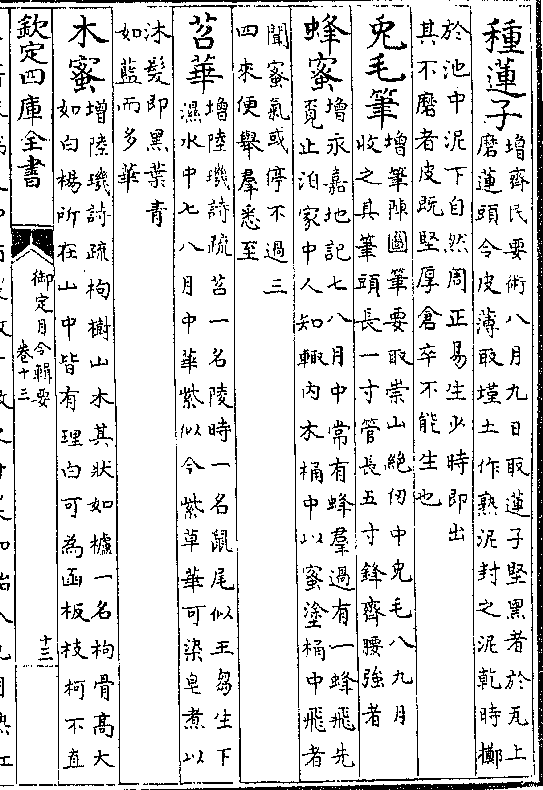 種蓮子
增齊民要術八月九日取蓮子堅黑者於瓦上
磨蓮頭令皮薄取墐土作熟泥封之泥乾時擲
於池中泥下自然周正易生少時即出
其不磨者皮既堅厚倉卒不能生也
兎毛筆
增筆陣圖筆要取崇山絶仞中兎毛八九月
收之其筆頭長一寸管長五寸鋒齊腰強者
蜂蜜
增永嘉地記七八月中常有蜂羣過有一蜂飛先
覓止泊家中人知輙內木桶中以蜜塗桶中飛者
聞蜜氣或停不過三
四來便舉羣悉至
苕華
增陸璣詩疏苕一名陵時一名鼠尾似王芻生下
濕水中七八月中華紫似今紫草華可染皂煮以
沐髮即黑葉青
如藍而多華
木蜜
增陸璣詩疏枸樹山木其狀如櫨一名枸骨高大
如白楊所在山中皆有理白可為函板枝柯不直
欽定四庫全書
御定月令輯要
卷十三
十三